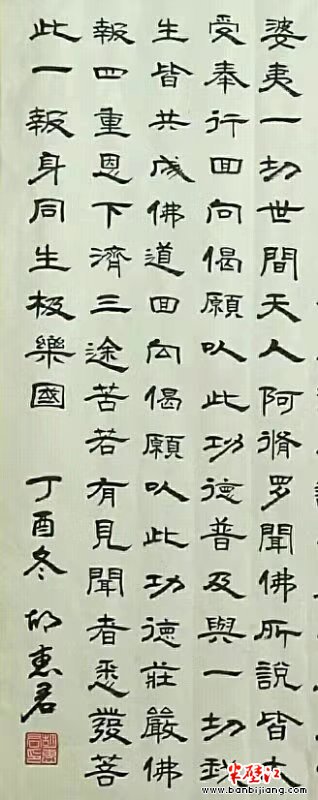 婆夷一切世間天人阿脩罗聞佛所說皆大
受奉行回向偈願以此功德普及與一切我
生皆共成佛道回向偈願以此功德莊嚴佛
報四重恩下濟三途苦若有見聞者悉發菩
此一報身同生极樂國
丁酉冬 胡惠君
半壁江
www.banbijiang.com